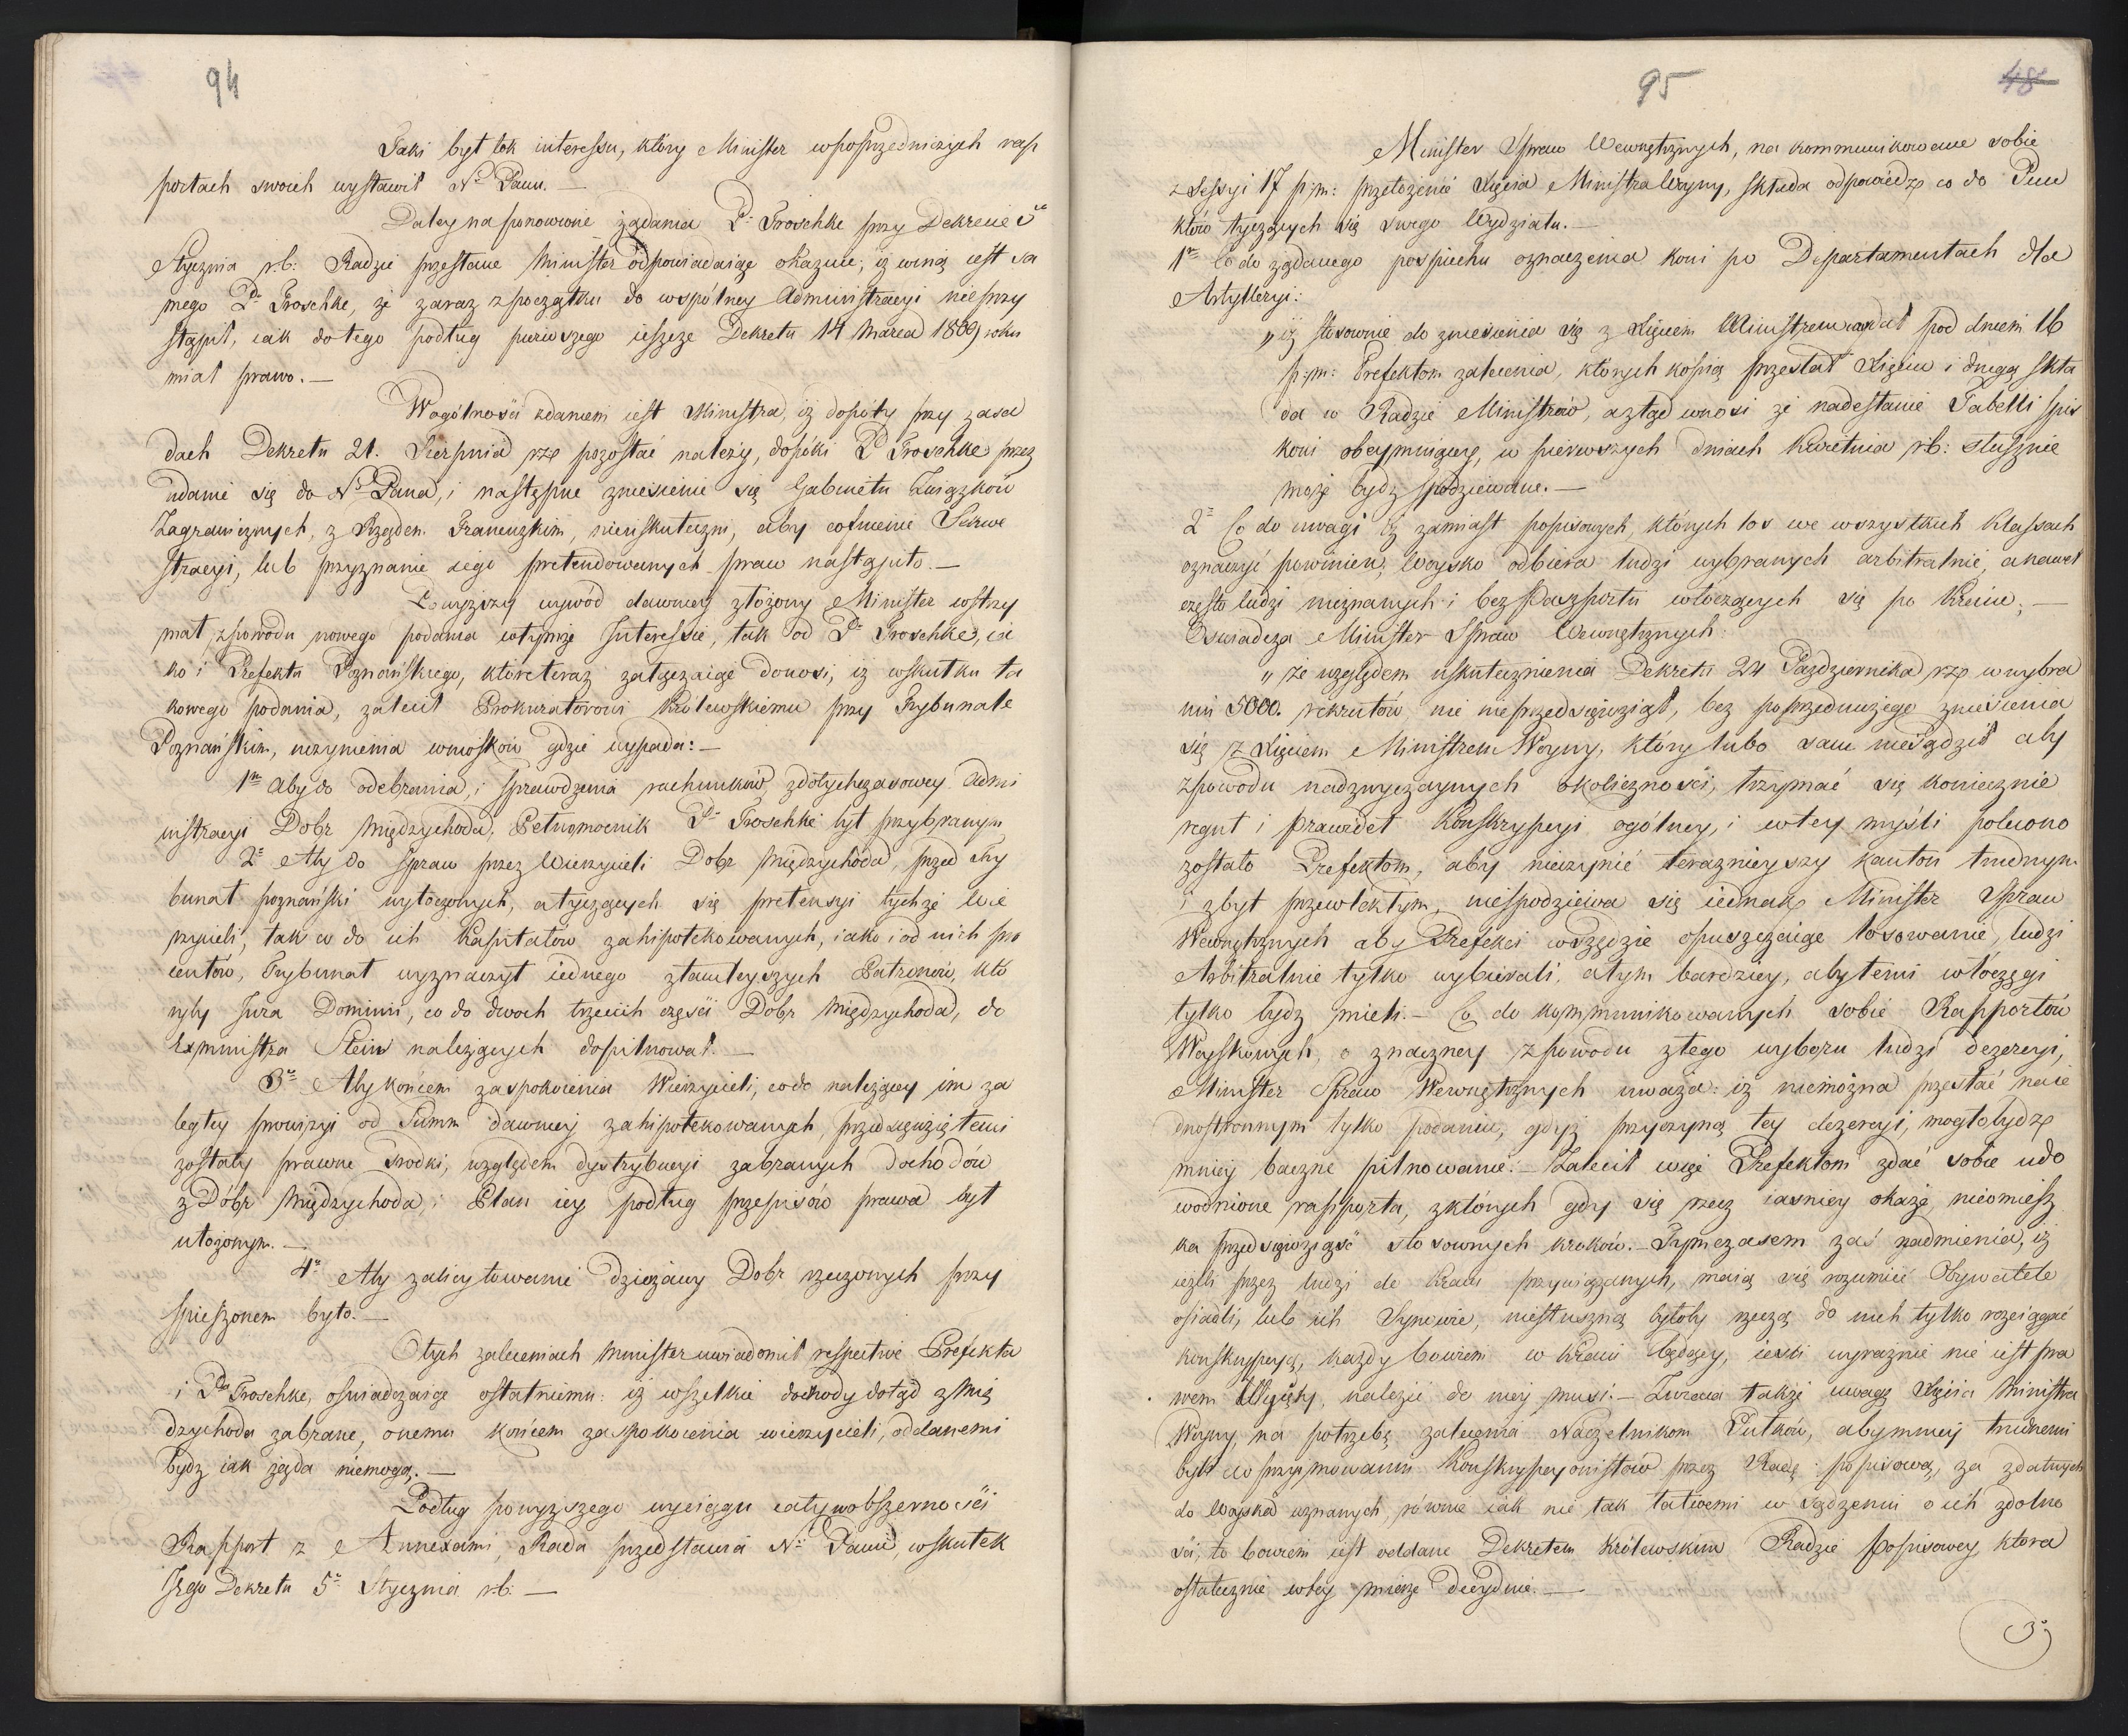 94
Taki był tok interessu, który Minister w poprzedniczych rap
portach swoich wystawił N. Panu. —
Daley na ponowione żądania P. Troschke przy Dekrecie 5
Stycznia r. b. Radzie przesłane Minister odpowiadaiąc okazuie, iż winą iest sa
mego P. Troschke, że zaraz z początku do wspólney Administracyi nieprzy
stąpił, iak do tego podług pierwszego ieszcze Dekretu 14 Marca 1809 roku
miał prawo. —
W ogólności zdaniem iest Ministra, iż dopóty przy zasa
dach Dekretu 21. Sierpnia rzp pozostać należy, dopóki P Troschke przez
udanie się do N. Pana, i następne zniesienie się Gabinetu Związków
Zagranicznych, z Rządem Francuzkim, nieuskuteczni, aby cofnienie Sekwe
stracyi, lub przyznanie iego pretendowanych praw nastąpiło. —
Powyższy wywód dawniey złożony Minister wstrzy
mał, z powodu nowego podania w tymże Interessie, tak od P. Troschke, ia
ko i Prefekta Poznańskiego, które teraz załączaiąc donosi, iż w skutku ta
kowego podania, zalecił Prokuratorowi Królewskiemu przy Trybunale
Poznańskim, uczynienia wniosków gdzie wypada: —
1. Aby do odebrania, i sprawdzenia rachunków z dotychczasowey Admi
nistracyi Dobr Międzychoda, Pełnomocnik P. Troschke był przybranym
2. Aby do spraw przez Wierzycieli Dobr Międzychoda, przed Try
bunał poznański wytoczonych, a tyczących się pretensyi tychże Wie
rzycieli, tak co do ich Kapitałów zahipotekowanych, iako i od nich pro
centów, Trybunał wyznaczył iednego z tamteyszych Patronów, któ
ryby Jura Dominii, co do dwoch trzecich części Dobr Międzychoda, do
Exministra Stein należących dopilnował. —
3. Aby końcem zaspokoienia Wierzycieli, co do należącey im za
ległey prowizyi od Summ dawniey zahipotekowanych, przedsięwziętemi
zostały prawne srodki, względem dystrybucyi zabranych dochodów
z Dóbr Międzychoda, i Plan iey podług przepisów prawa był
ułożonym. —
4. Aby zalicytowanie dzierżawy Dobr rzeczonych przy
spieszonem było. —
O tych zaleceniach Minister uwiadomił respective Prefekta
i P. Troschke, oświadczaiąc ostatniemu: iż wszelkie dochody dotąd z Mię
dzychoda zabrane, onemu końcem zaspokoienia wierzycieli, oddanemi
bydz iak żąda niemogą. —
Podług powyższego wyciągu cały w obszerności
Rapport z Annexami, Rada przedstawia N. Panu, w skutek
Jego Dekretu 5. Stycznia r. b. —
95
48
Minister Spraw Wewnętrznych, na kommunikowane sobie
z Sessyi 17 p. m: przełożenie Xięcia Ministra Woyny, składa odpowiedz co do Pun
któw tyczących się swego Wydziału. —
1. Co do żądanego pospiechu oznaczenia koni po Departamentach dla
Artylleryi:
„iż stosownie do zniesienia się z Xięciem Ministrem wydał pod dniem 16
p. m: Prefektom zalecenia, których kopią przesłał Xięciu i drugą skła
da w Radzie Ministrów, a ztąd wnosi że nadesłanie Tabelli spis
koni obeymuiącey, w pierwszych dniach Kwietnia r. b: słusznie
może bydz spodziewane. —
2. Co do uwagi iż zamiast popisowych, których los we wszystkich Klassach
oznaczyć powinien, woysko odbiera ludzi wybranych arbitralnie, a nawet
często ludzi nieznanych i bez Paszportu włoczących się po kraiu; —
Oswiadcza Minister Spraw Wewnętrznych:
„że względem uskutecznienia Dekretu 24 Pazdziernika rzp w wybra
niu 5000. rekrutów nic nieprzedsięwziął, bez poprzedniczego zniesienia
się z Xięciem Ministrem Woyny, który lubo sam niesądził aby
z powodu nadzwyczaynych okoliczności, trzymać się koniecznie
reguł i prawideł Konskrypcyi ogólney, i w tey myśli polecono
zostało Prefektom, aby nieczynić terazniejszy kanton trudnym
i zbyt przewlekłym, niespodziewa się iednak Minister Spraw
Wewnętrznych aby Prefekci wszędzie opuszczaiąc losowanie, ludzi
Arbitralnie tylko wybierali, a tym bardziey, aby temi włóczęgi
tylko bydz mieli. — Co do kommunikowanych sobie Rapportów
Woyskowych, o znaczney z powodu złego wyboru ludzi dezercyi,
Minister Spraw Wewnętrznych uważa: iż niemożna przestać na ie
dnostronnym tylko podaniu, gdyż przyczyną tey dezercyi, mogło bydz
mniey baczne pilnowanie. — Zalecił więc Prefektom zdać sobie udo
wodnione rapporta, z których gdy się rzecz iasniey okaże, nieomiesz
ka przedsięwziąść stosownych kroków. — Tymczasem zaś nadmienia, iż
ieżeli przez ludzi do kraiu przywiązanych, maią się rozumieć Obywatele
osiadli, lub ich Synowie, niesłuszną byłoby rzeczą do nich tylko rozciągać
konskrypcyą, każdy bowiem w kraiu będący, ieżeli wyraznie nie iest pra
wem Wyięty, należeć do niey musi. — Zwraca także uwagę Xięcia Ministra
Woyny, na potrzebę zalecenia Naczelnikom Pułków, aby mniey trudnemi
byli do przyymowania Konskrypcyonistów przez Radę popisową, za zdatnych
do Woyska uznanych, równie iak nie tak łatwemi w sądzeniu o ich zdolno
ści, to bowiem iest oddane Dekretem Królewskim Radzie popisowey, która
ostatecznie w tey mierze decyduie. —
3.